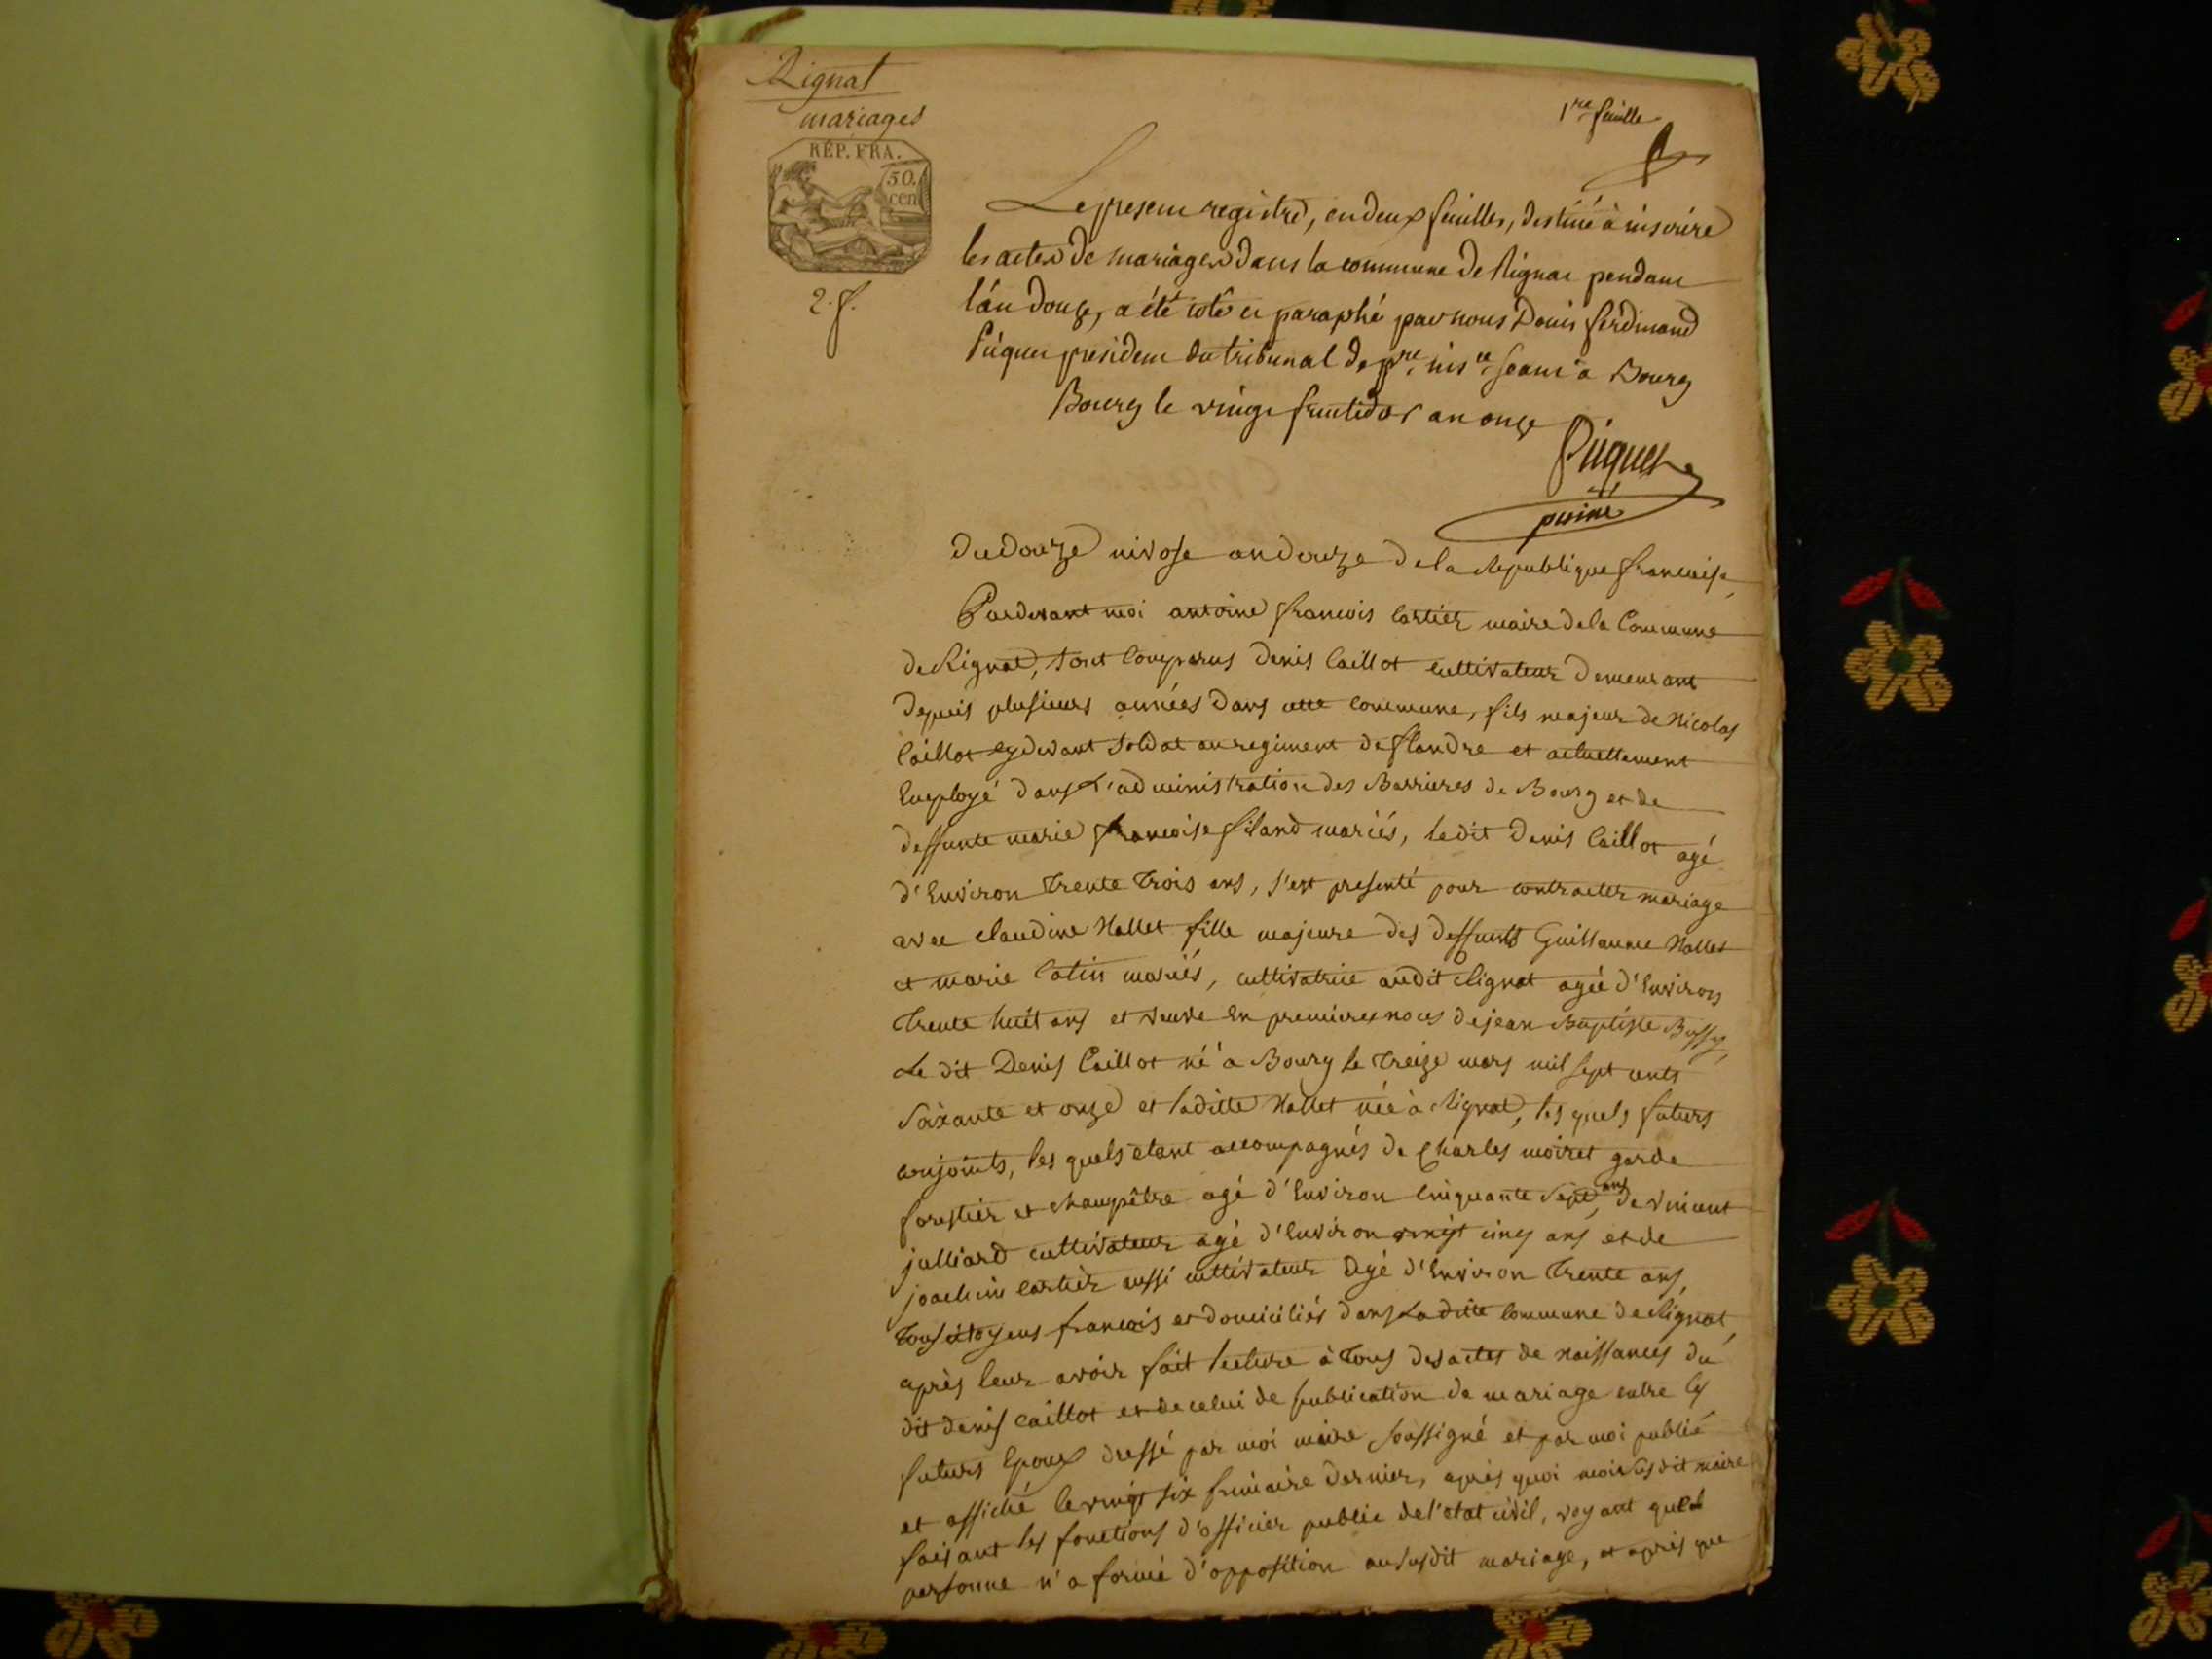 Rignat
mariages
RÉP. FRA.
50.
cen
2. f.
1re feuille
Le present registre, en deux feuilles, destiné à inscrire
les actes de mariages dans la commune de Rignat pendant
l'an douze, a été coté et paraphé par nous Denis ferdinand
Piquet president du tribunal de pre. insce. seant à Bourg
Bourg le vingt fructidor an onze
Piquet
puiné
du douze nivose an douze de la Republique francoise,
Pardevant moi antoine francois Cartier maire de la Commune
de Rignat, sont Comparus denis Caillot cultivateur demeurant
depuis plusieurs années dans cette commune, fils majeur de Nicolas
Caillot cydevant soldat au regiment de flandre et actuellement
Employé dans L'administration des Barrieres de Bourg et de
deffunte marie francoise filand mariés, ledit Denis Caillot agé
d'Environ trente trois ans, s'est presenté pour contracter mariage
avec claudine Nallet fille majeure des deffunts Guillaume Nallet
et marie Catin mariés, cultivatrice audit Rignat agée d'Environ
trente huit ans et veuve En premieres noces de jean Baptiste Bussy,
Le dit Denis Caillot né à Bourg le treize mars mil sept cents
soixante et onze et laditte Nallet née à Rignat, les quels futurs
conjoints, les quels étant accompagnés de Charles moiret garde
forestier et champêtre agé d'Environ Cinquante sept ans, de vincent
julliard cultivateur agé d'Environ vingt cinq ans et de
joachim Cartier aussi cultivateur agé d'Environ trente ans,
tous citoyens francois et domiciliés dans Laditte Commune de Rignat,
après leur avoir fait lecture à tous des actes de naissances du
dit denis Caillot et de celui de publication de mariage entre les
futurs Epoux dressé par moi maire soussigné et par moi publié
et affiché le vingt six frimaire dernier, après quoi moi susdit maire
faisant les fonctions d'officier public de l'etat civil, voyant que
personne n'a formé d'opposition au susdit mariage, et après que